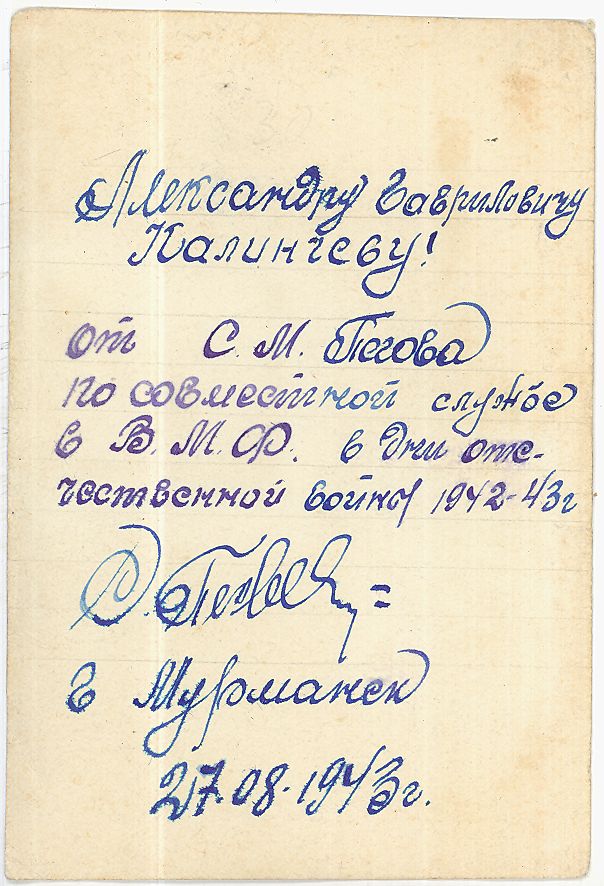 Александру Гавриловичу
Калинчеву!
от С. М. Пегова
по совместной службе
в В. М. Ф. в дни оте-
чественной войны 1942-43г
С. Пегов
г Мурманск
27.08.1943г.